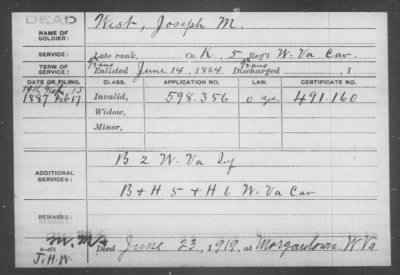 DEAD
NAME OF SOLDIER: West, Joseph M.
SERVICE: Late rank, Co. K, 5 Reg't W. Va Cav.
TERM OF SERVICE: Enlisted June 14, 1864. Discharged , 1
DATE OF FILING. CLASS. APPLICATION NO. LAW. CERTIFICATE NO.
1887 Feb 17 Invalid, 598.356 491.160
Widow,
Minor,
ADDITIONAL SERVICES: B 2 W. Va Inf
B + H 5 + H 6 W. Va Cav
REMARKS:
Died June 23, 1919, at Morgantown W Va
J.H.W.